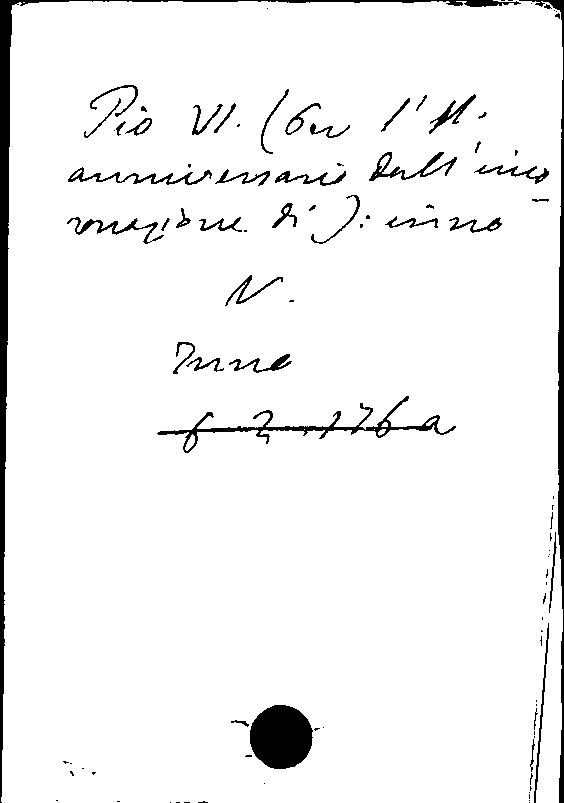 Pio VI. (Per l' II.
anniversario dell' inco
ronazione di): inno
V.
Inno
6 2 .176 a